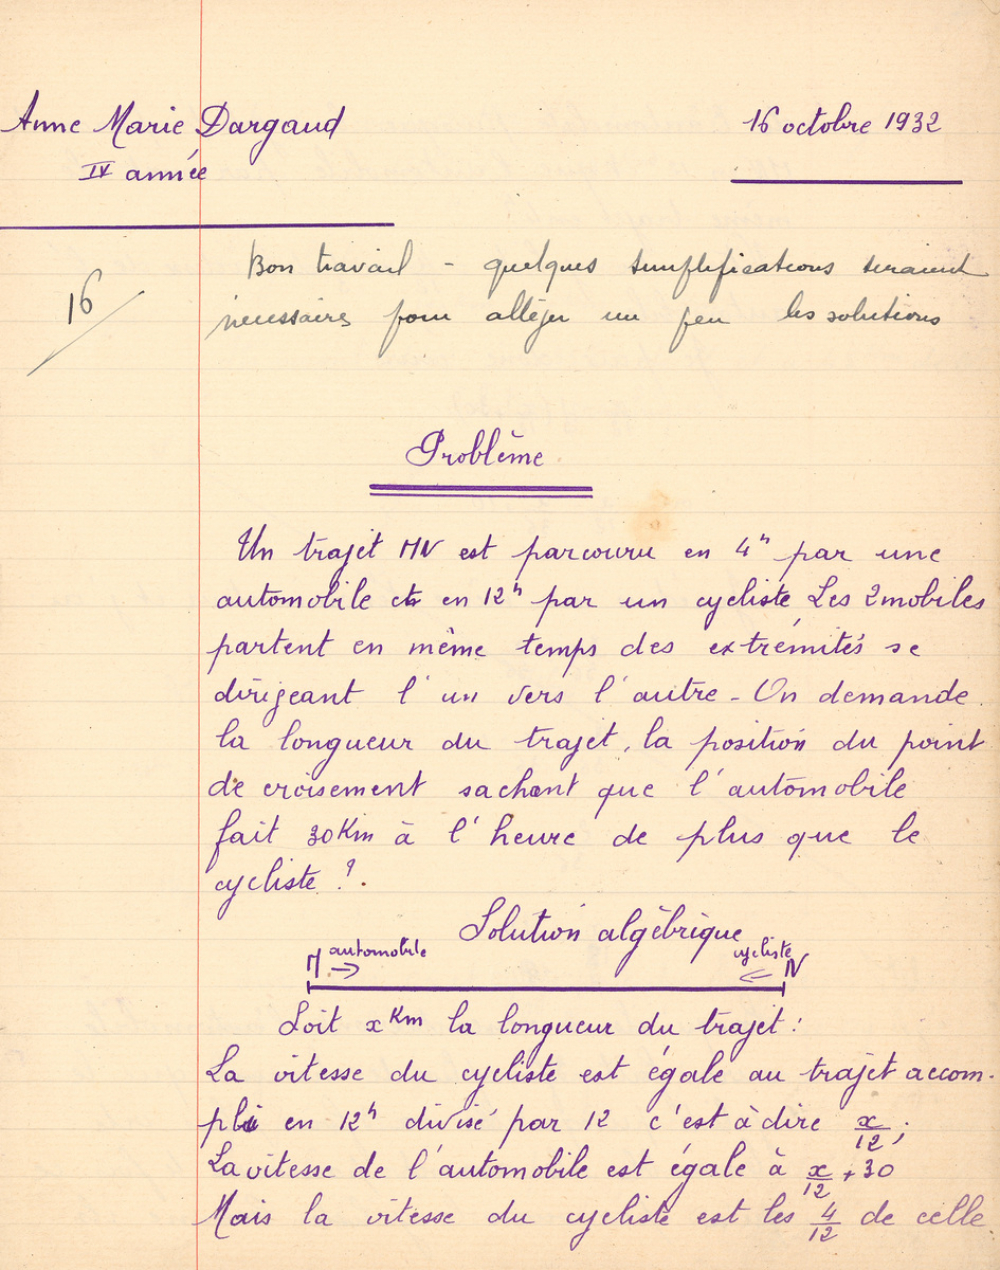 Anne Marie Dargaud
16 octobre 1932
IV année
16
Bon travail - quelques simplifications seraient
nécessaires pour alléger un peu les solutions
Problème
Un trajet MN est parcouru en 4h par une
automobile et en 12h par un cycliste Les 2 mobiles
partent en même temps des extrémités se
dirigeant l'un vers l'autre - On demande
la longueur du trajet, la position du point
de croisement sachant que l'automobile
fait 30 Km à l'heure de plus que le
cycliste ?.
Solution algébrique
M automobile → cycliste ← N
Soit x Km la longueur du trajet :
La vitesse du cycliste est égale au trajet accom-
pli en 12h divisé par 12 c'est à dire x/12 ;
La vitesse de l'automobile est égale à x/12 + 30
Mais la vitesse du cycliste est les 4/12 de celle